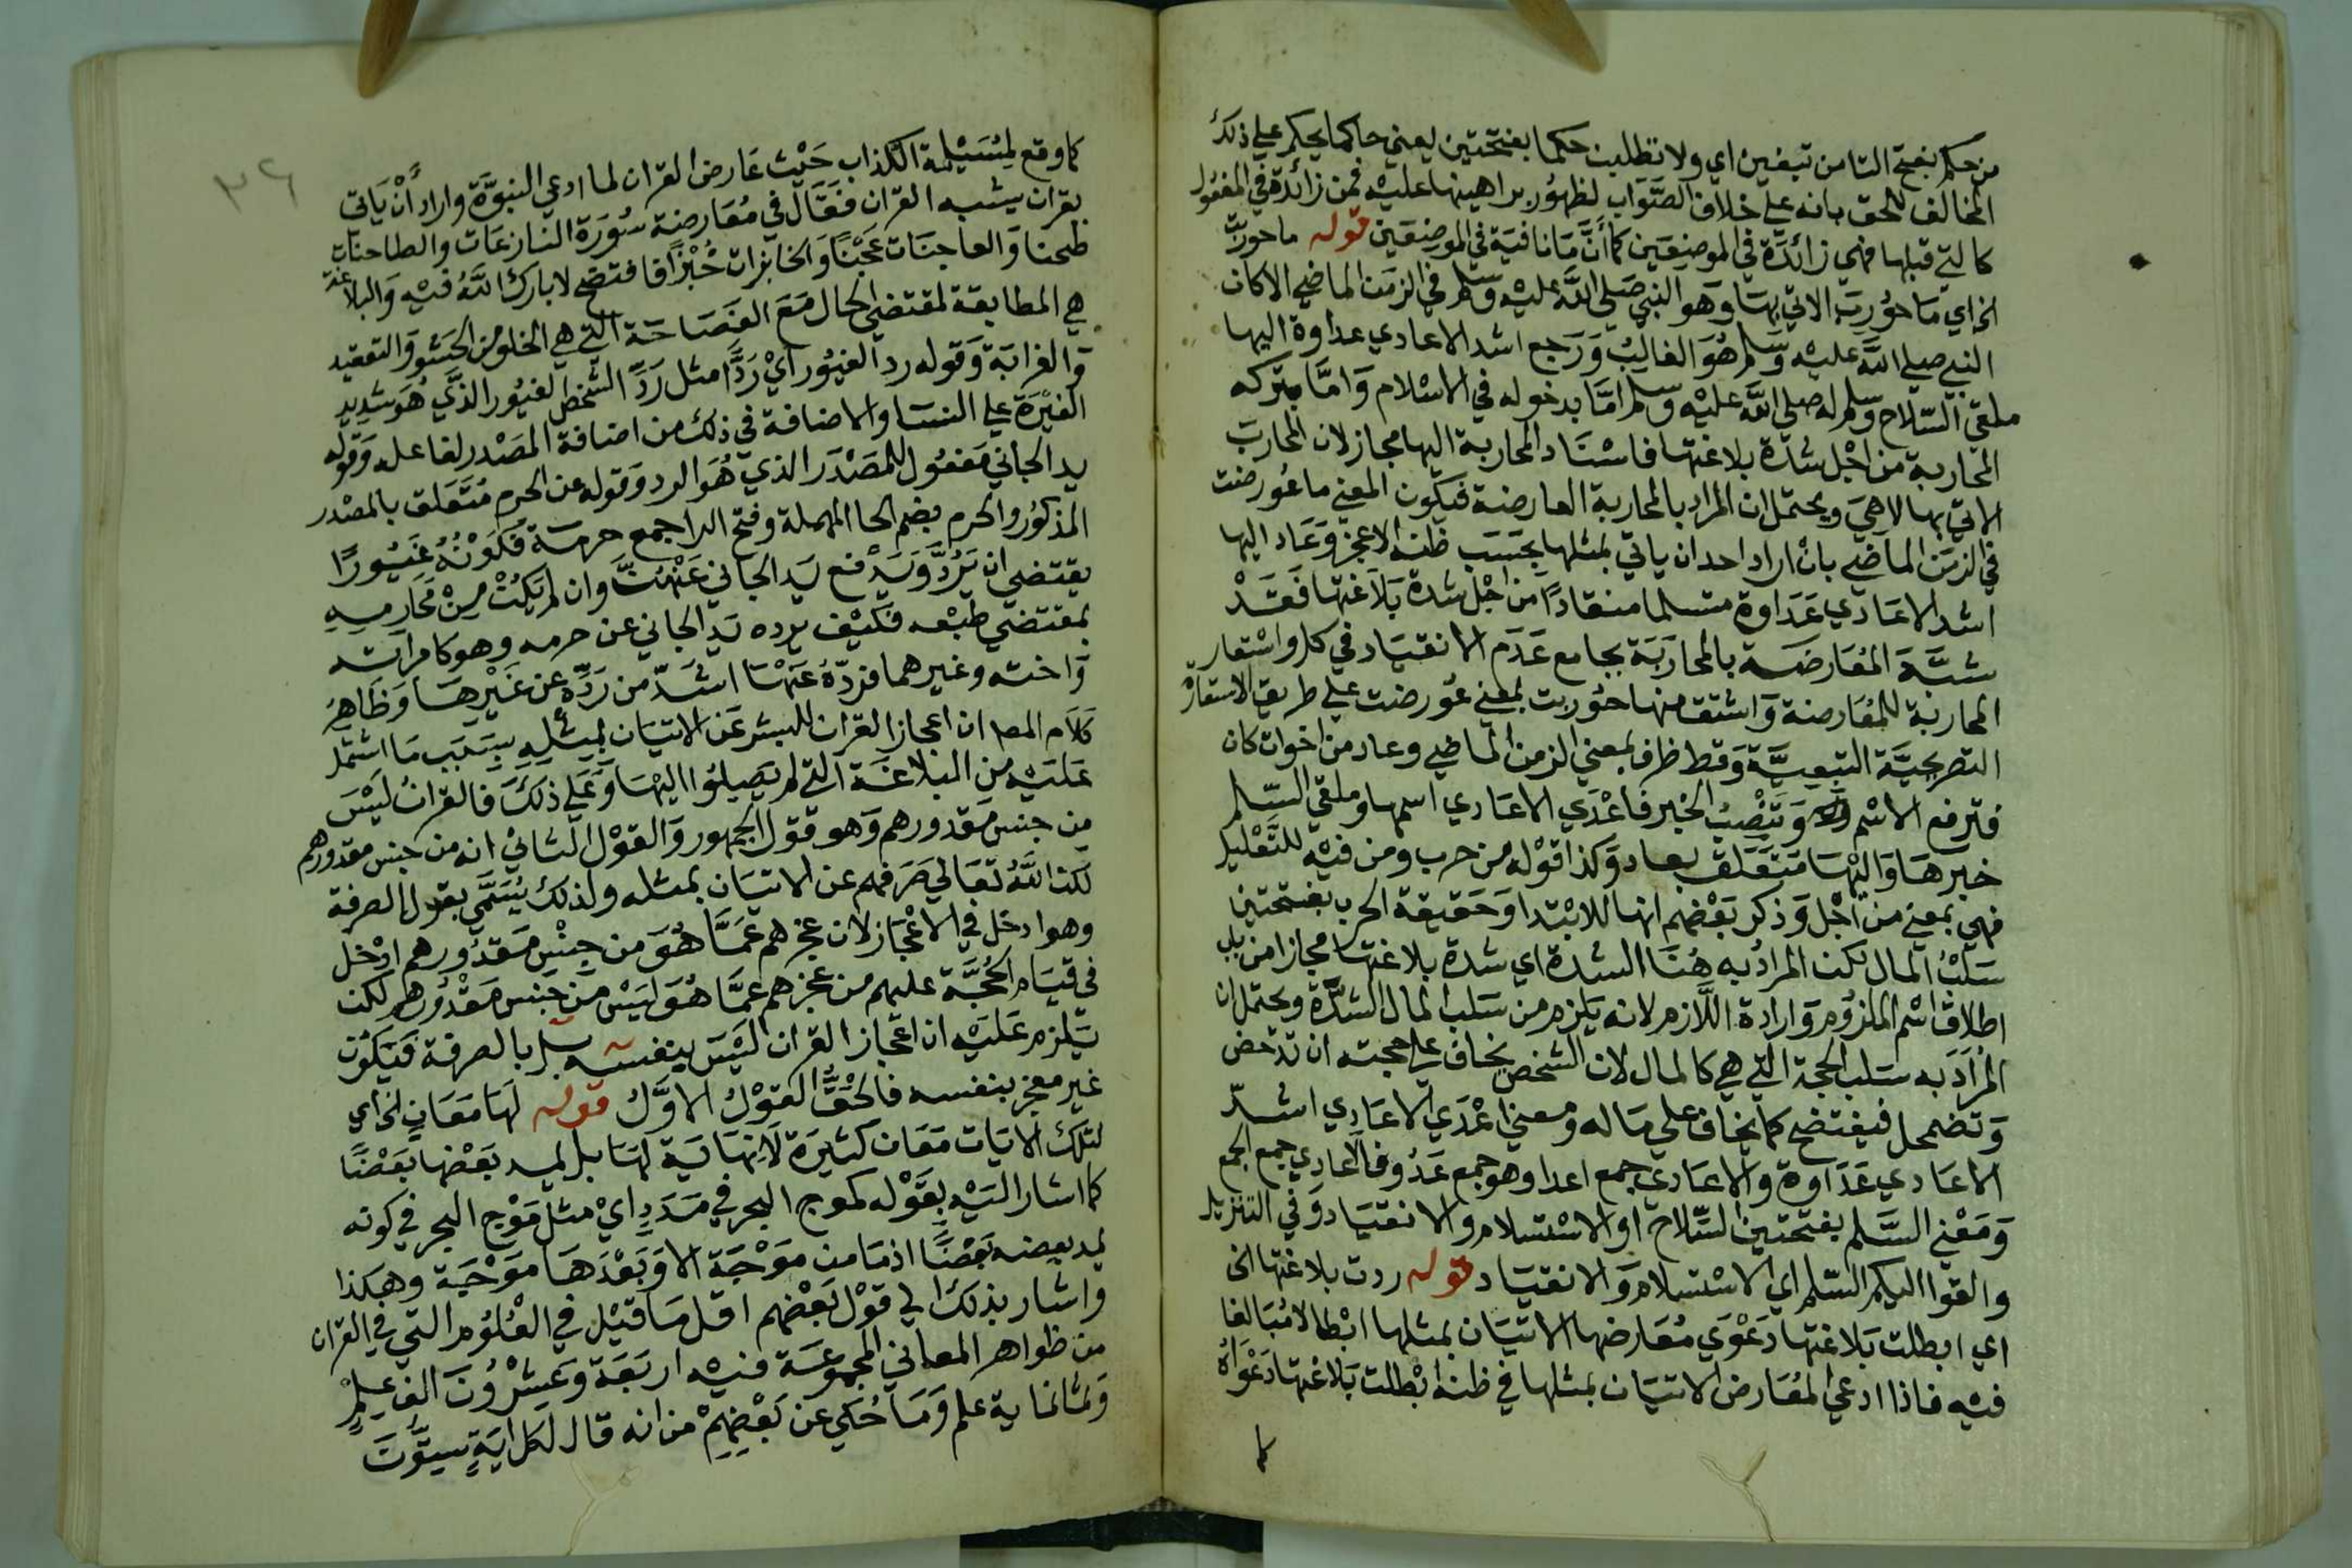 من حكم بفتح التا من تبغين اي ولا تطلبن حكما بفتحتين يعني حاكما يحكم علي ذلك
المخالف للحق بانه علي خلاف الصواب لظهور براهينها عليه فمن زائدة في المفعول
كالتي قبلها فهي زائدة في الموضعين كما أن ما نافية في الموضعين قوله ما حوربت
الخ اي ما حورب الاتي بها وهو النبي صلي الله عليه وسلم في الزمن الماضي الا كان
النبي صلي الله عليه وسلم هو الغالب ورجع اشد الاعادي عداوة اليها
ملقي السلاح وسلم له صلي الله عليه وسلم اما بدخوله في الاسلام واما بتركه
المحاربة من اجل شدة بلاغتها فاسناد المحاربة اليها مجاز لان المحارب
الاتي بها لا هي ويحتمل ان المراد بالمحاربة المعارضة فيكون المعني ما عورضت
في الزمن الماضي بان اراد احد ان ياتي بمثلها بحسب ظنه الا عجز وعاد اليها
اشد الاعادي عداوة مسلما منقادا من اجل شدة بلاغتها فقد
شبه المعارضة بالمحاربة بجامع عدم الانقياد في كل واستعار
المحاربة للمعارضة واشتق منها حوربت بمعني عورضت علي طريق الاستعارة
التصريحية التبعية وقط ظرف بمعني الزمن الماضي وعاد من اخوات كان
فترفع الاسم وتنصب الخبر فاعدي الاعادي اسمها وملقي السلم
خبرها واليها متعلق بعاد وكذا قوله من حرب ومن فيه للتعليل
فهي بمعني من اجل وذكر بعضهم انها للابتدا وحقيقة الحرب بفتحتين
سلب المال لكن المراد به هنا الشدة اي شدة بلاغتها مجازا من باب
اطلاق اسم الملزوم وارادة اللازم لانه يلزم من سلب المال الشدة ويحتمل ان
المراد به سلب الحجة التي هي كالمال لان الشخص يخاف علي حجته ان تدحض
وتضمحل فيفتضح كما يخاف علي ماله ومعني اعدي الاعادي اشد
الاعادي عداوة والاعادي جمع اعدا وهو جمع عدو فالاعادي جمع الجمع
ومعني السلم بفتحتين السلاح او الاستسلام والانقياد وفي التنزيل
والقوا اليكم السلم اي الاستسلام والانقياد قوله ردت بلاغتها الخ
اي ابطلت بلاغتها دعوي معارضها الاتيان بمثلها ابطالا مبالغا
فيه فاذا ادعي المعارض الاتيان بمثلها في ظنه ابطلت بلاغتها دعواه
كما
٣٦
كما وقع لمسيلمة الكذاب حيث عارض القران لما ادعي النبوة واراد أن ياتي
بقران يشبه القران فقال في معارضة سورة النازعات والطاحنات
طحنا والعاجنات عجنا والخابزات خبزا فافتضح لا بارك الله فيه والبلاغة
هي المطابقة لمقتضي الحال مع الفصاحة التي هي الخلو من الحشو والتعقيد
والغرابة وقوله رد الغيور أي ردا مثل رد الشخص الغيور الذي هو شديد
الغيرة علي النسا والاضافة في ذلك من اضافة المصدر لفاعله وقوله
يد الجاني مفعول للمصدر الذي هو الرد وقوله عن الحرم متعلق بالمصدر
المذكور والحرم بضم الحا المهملة وفتح الرا جمع حرمة فكونه غيورا
يقتضي ان يرد ويدفع يد الجاني عنهن وان لم يكن من محارمه
بمقتضي طبعه فكيف برده يد الجاني عن حرمه وهو كامراته
واخته وغيرهما فرده عنها اشد من رده عن غيرها وظاهر
كلام المص ان اعجاز القران للبشر عن الاتيان بمثله بسبب ما اشتمل
عليه من البلاغة التي لم يصلوا اليها وعلي ذلك فالقران ليس
من جنس مقدورهم وهو قول الجمهور والقول الثاني انه من جنس مقدورهم
لكن الله تعالي صرفهم عن الاتيان بمثله ولذلك يسمي بقول الصرفة
وهو ادخل في الاعجاز لان عجزهم عما هو من جنس مقدورهم ادخل
في قيام الحجة عليهم من عجزهم عما هو ليس من جنس مقدورهم لكن
يلزم عليه ان اعجاز القران ليس بنفسه بل بالصرفة فيكون
غير معجز بنفسه فالحق القول الاول قوله لها معان الخ اي
لتلك الايات معان كثيرة لا نهاية لها بل يمد بعضها بعضا
كما اشار اليه بقوله كموج البحر في مدد اي مثل موج البحر في كونه
يمد بعضه بعضا اذ ما من موجة الا وبعدها موجة وهكذا
واشار بذلك الي قول بعضهم اقل ما قيل في العلوم التي في القران
من ظواهر المعاني المجموعة فيه اربعة وعشرون الف علم
وثمانماية علم وما حكي عن بعضهم من انه قال لكل اية ستون